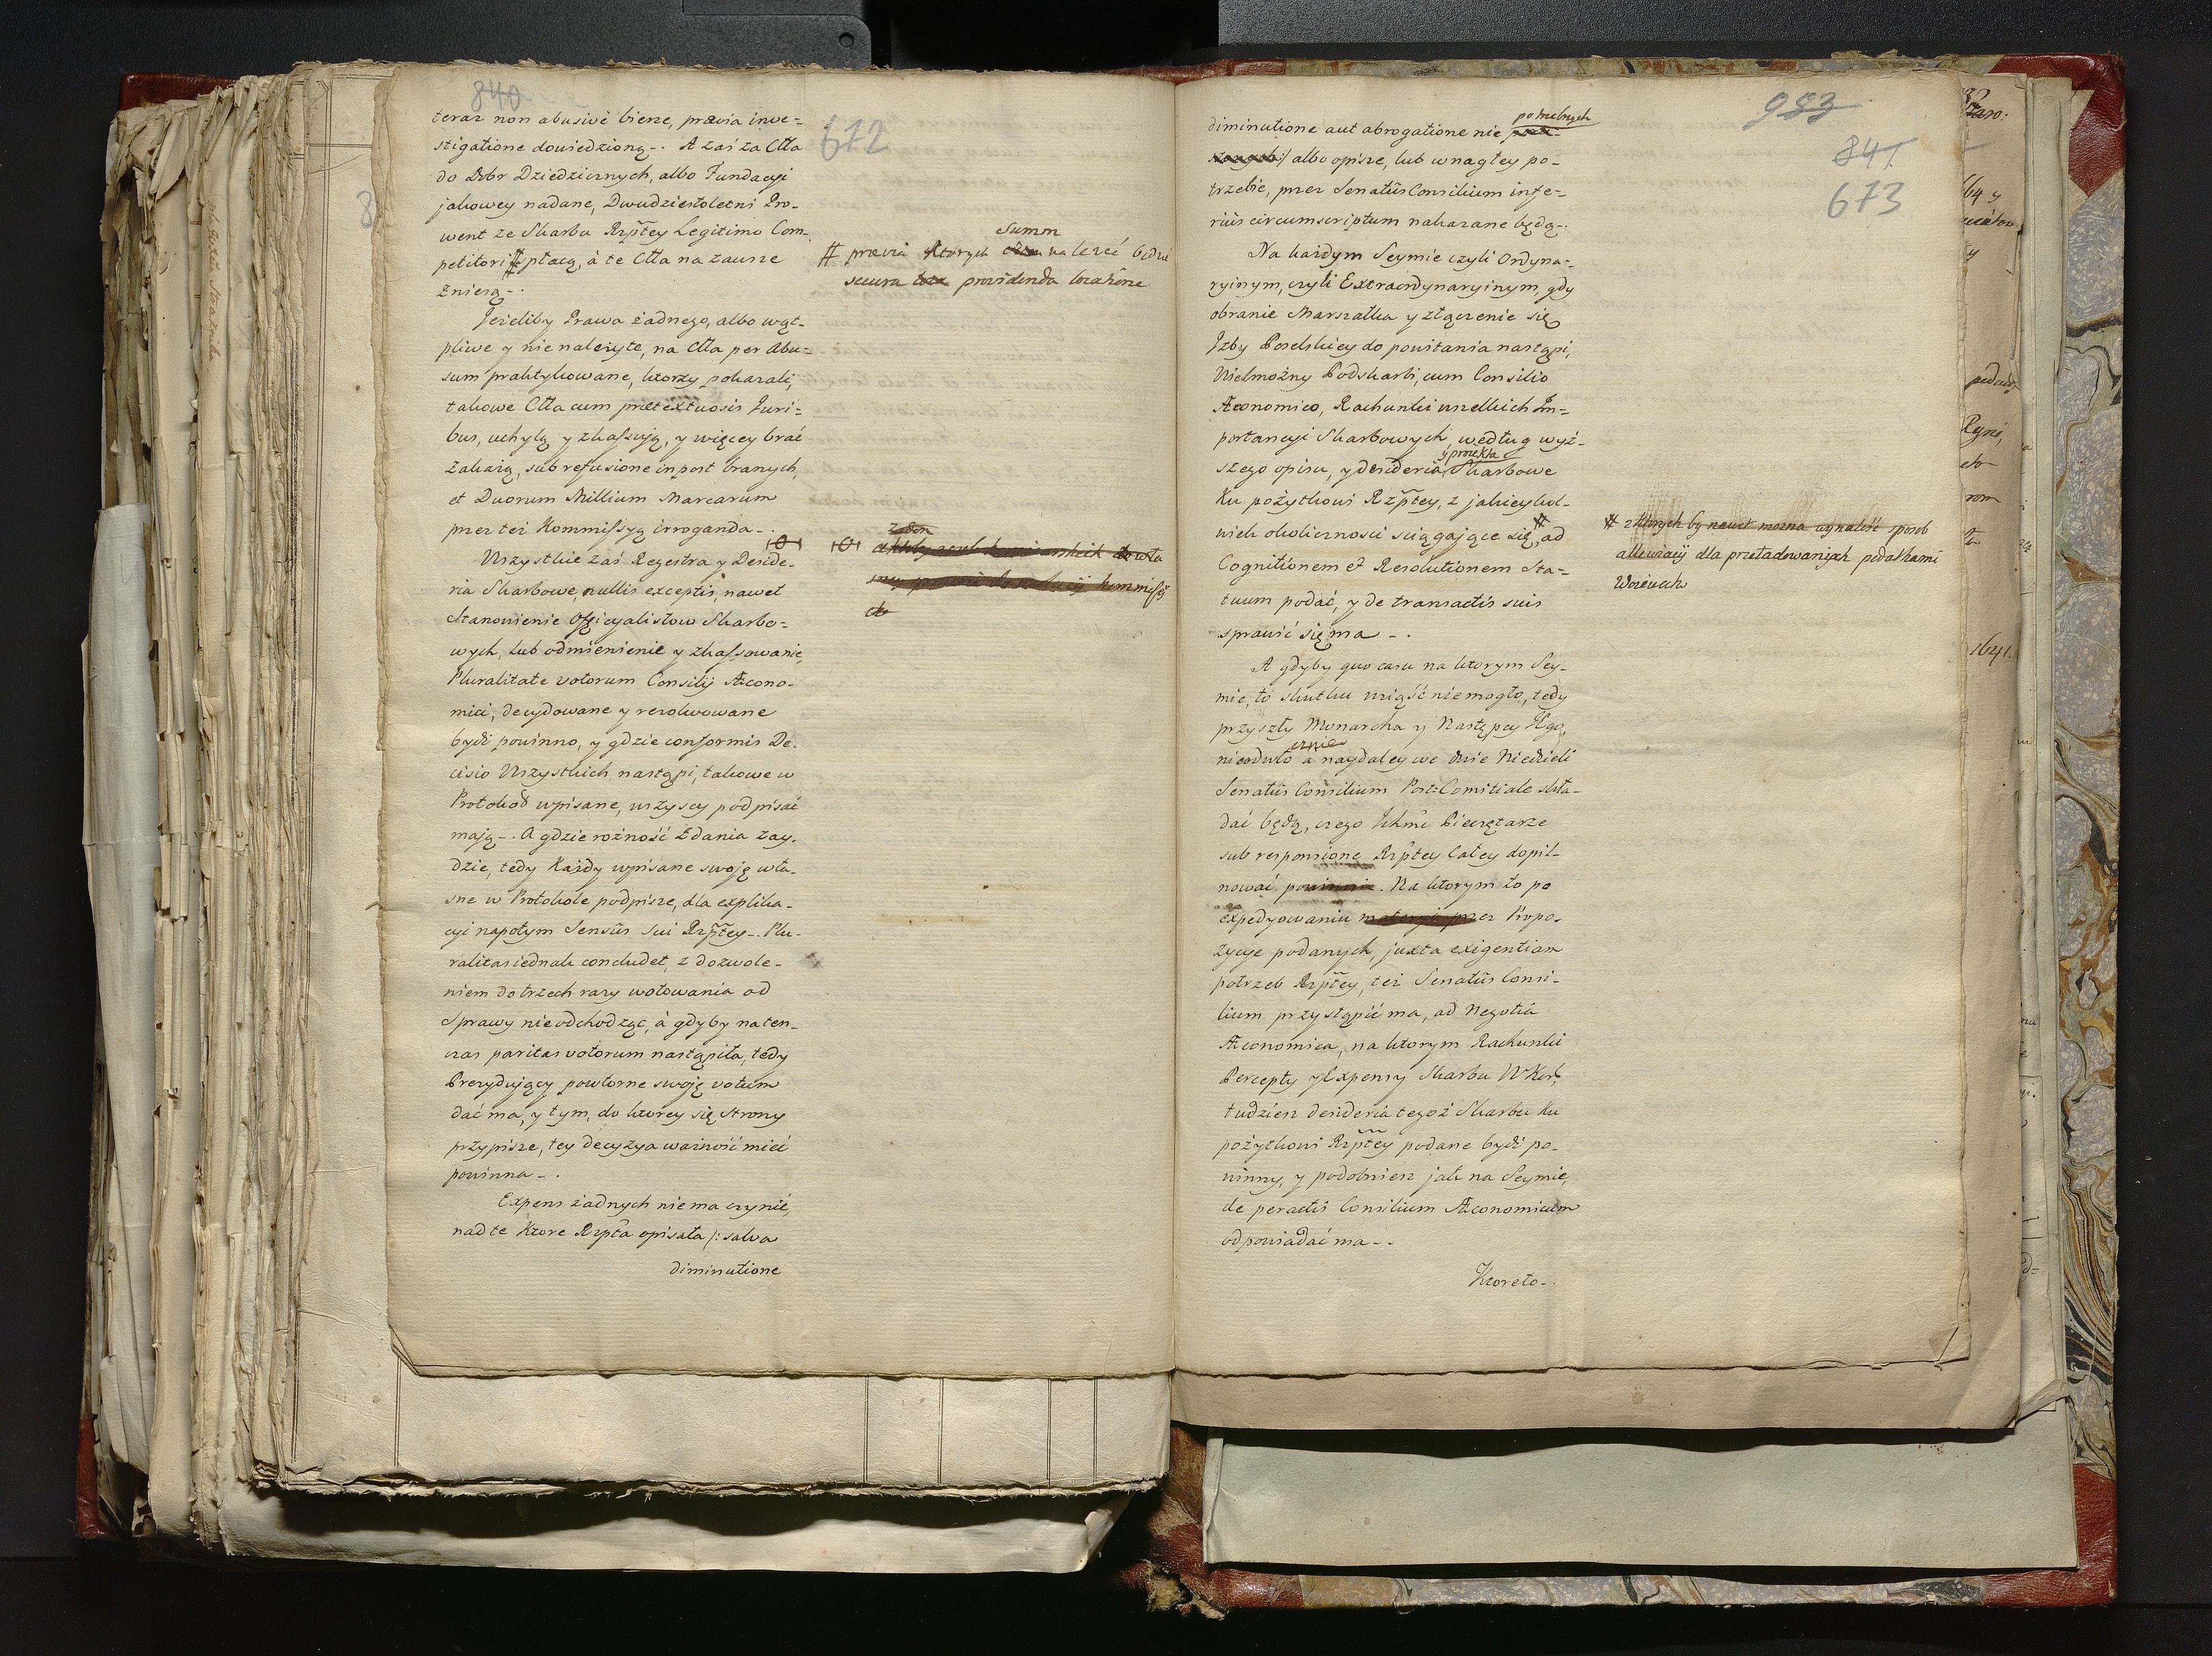 840
672
teraz non abusivè bierze, prævia inve=
stigatione dowiedzioną-. A zaś za Cła
do Dobr Dziedzicznych, albo Fundacyi
jakowey nadane, Dwudziestoletni Pro-
went ze Skarbu Rzptey Legitimo Com-
petitori # płacą, à te Cła na zawsze
zniszą-.
Jeżeliby Prawa żadnego, albo wąt-
pliwe y nie należyte, na Cła per Abu=
sum praktykowane, ktorzy pokazali,
takowe Cła cum prætextuosis Juri=
bus, uchylą y zkassują, y więcey brać
zakażą, sub refusione in post branych,
et Duorum Millium Marcarum
przez też Kommissyą irroganda-.
Wszystkie zaś Regestra y Deside-
ria Skarbowe, nullis exceptis, nawet
Stanowienie Officyalistow Skarbo=
wych, lub odmienienie y zkassowanie,
Pluralitate votorum Consilij Æcono-
mici, decydowane y rezolwowane
bydź powinno, y gdzie conformis De-
cisio Wszystkich nastąpi, takowe w
Protokoł wpisane, wszyscy podpisać
mają-. A gdzie rożność Zdania zay-
dzie, tedy Każdy wpisane swoję wła-
sne w Protokole podpisze, dla explika-
cyi napotym Sensûs sui Rzptey-. Plu-
ralitas iednak concludet, z dozwole-
niem do trzech razy wotowania od
Sprawy nie odchodząc, à gdyby na ten-
czas paritas votorum nastąpiła, tedy
Prezydujący powtorne swoję votum
dać ma, y tym, do ktorey się Strony
przypisze, tey decyzya ważność mieć
powinna-.
Expens żadnych nie ma czynić,
nad te Ktore Rzpta opisała /: salva
diminutione
Summ
# prævia ktorych należeć będzie
secura providenda locatione
983
841
673
potrzebnych
diminutione aut abrogatione nie
:/ albo opisze, lub w nagłey po-
trzebie, przez Senatûs Consilium infe-
riûs circumscriptum nakazane będą-.
Na każdym Seymie czyli Ordyna-
ryinym, czyli Extraordynaryinym, gdy
obranie Marszałka y złączenie się
Jzby Poselskiey do powitania nastąpi,
Wielmożny Podskarbi, cum Consilio
Æconomico, Rachunki wszelkich Im-
portancyi Skarbowych, według wyż-
szego opisu, y desideria y proiekta Skarbowe
Ku pożytkowi Rzptey, z jakieykol-
wiek okoliczności sciągające się, # ad
Cognitionem et Resolutionem Sta-
tuum podać, y de transactis suis
sprawić się ma-.
A gdyby quo casu na ktorym Sey-
mie, to skutku wziąść nie mogło, tedy
przyszły Monarcha y Następcy Jego,
nieodwłocznie a naydaley we dwie Niedzieli
Senatûs Consilium Post-Comitiale skła-
dać będą, czego Jchmć Pieczętarze
sub responsione Rzptey Całey dopil-
nować powinni. Na ktorym to po
expedyowaniu materyi przez Propo-
zycye podanych, juxta exigentiam
potrzeb Rzptey, też Senatûs Consi-
lium przystąpić ma, ad Negotia
Æconomica, na ktorym Rachunki
Percepty y Expensy Skarbu W. Kor.
tudziesz desideria tegoż Skarbu Ku
pożytkowi Rzptey podane bydź po-
winny, y podobniesz jak na Seymie,
de peractis Consilium Æconomicum
odpowiadać ma-.
Ktoreto-
# z ktorych by nawet można wynaleść sposob
allewiacij dla przeładowanych podatkami